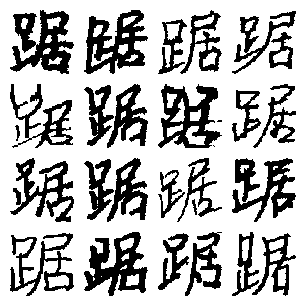 踞踞踞踞
踞踞踞踞
踞踞踞踞
踞踞踞踞